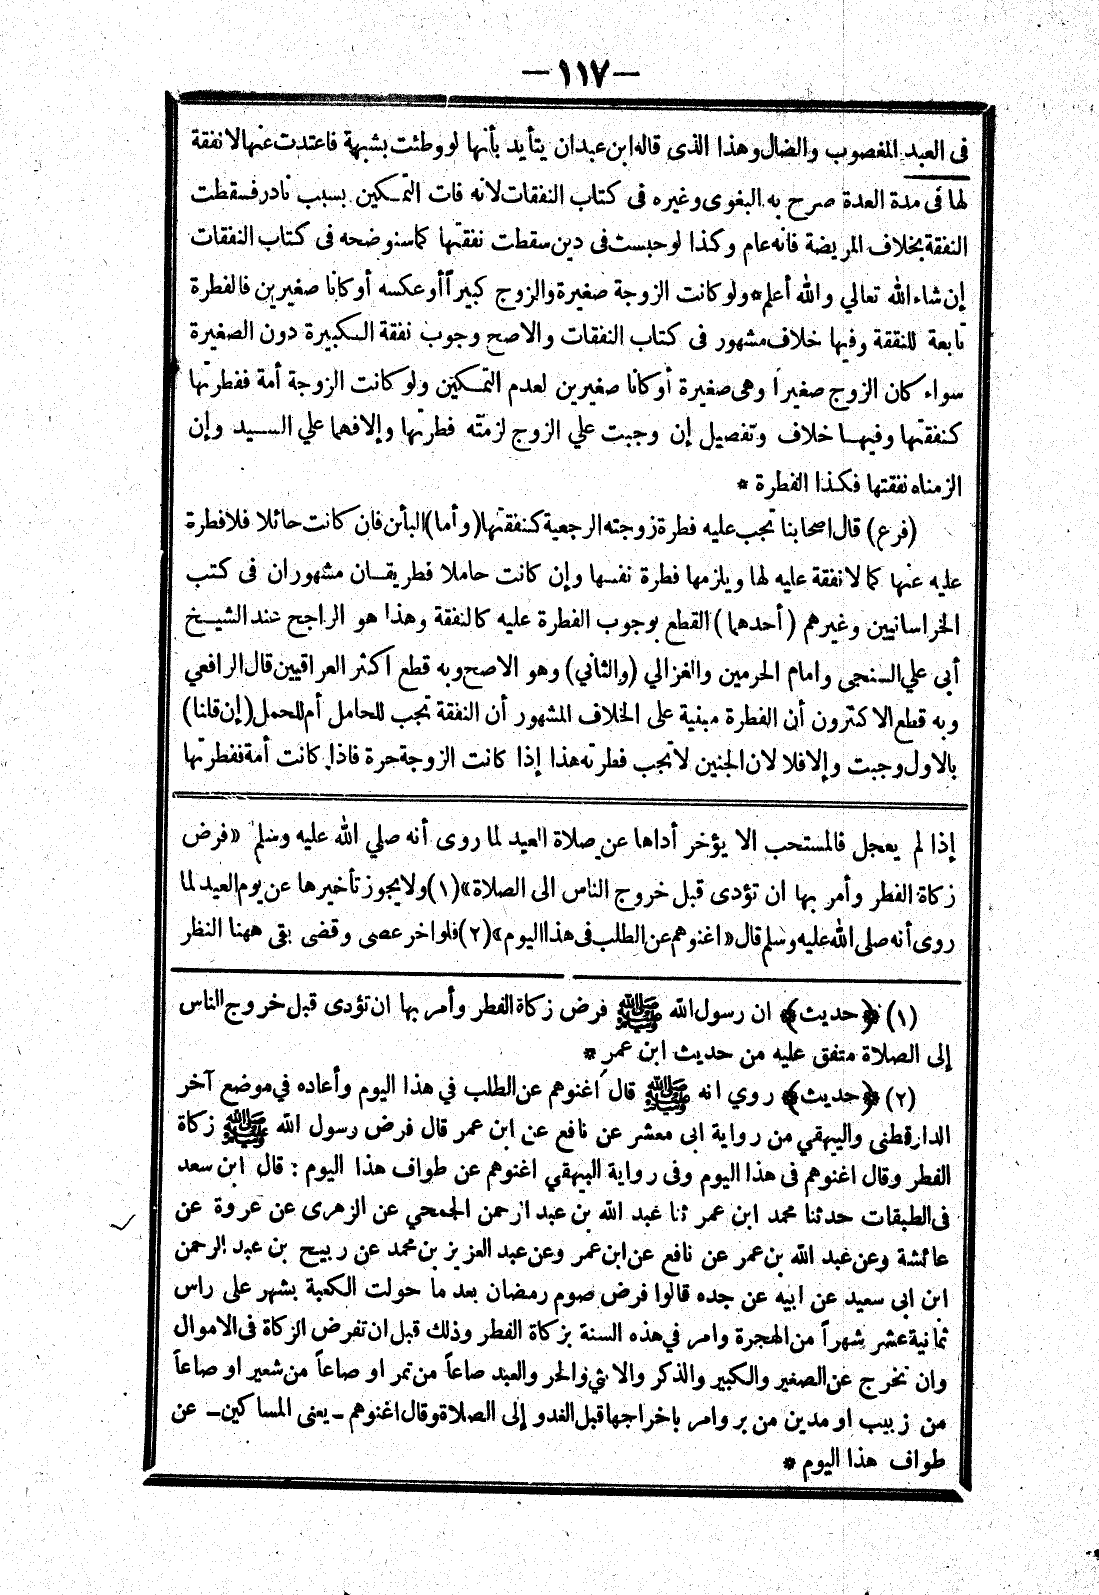 —١١٧—
فى العبد المغصوب والضال وهذا الذى قاله ابن عبدان يتأيد بأنها لو وطئت بشبهة فاعتدت عنها لا نفقة
لها فى مدة العدة صرح به البغوى وغيره فى كتاب النفقات لانه فات التمكين بسبب نادر فسقطت
النفقة بخلاف المريضة فانه عام وكذا لو حبست فى دين سقطت نفقتها كما سنوضحه فى كتاب النفقات
إن شاء الله تعالي والله أعلم * ولو كانت الزوجة صغيرة والزوج كبيراً أو عكسه أو كانا صغيرين فالفطرة
تابعة للنفقة وفيها خلاف مشهور فى كتاب النفقات والاصح وجوب نفقة الكبيرة دون الصغيرة
سواء كان الزوج صغيراً وهى صغيرة أو كانا صغيرين لعدم التمكين ولو كانت الزوجة أمة ففطرتها
كنفقتها وفيها خلاف وتفصيل إن وجبت علي الزوج لزمته فطرتها وإلا فهما علي السيد وإن
الزمناه نفقتها فكذا الفطرة *
(فرع) قال اصحابنا تجب عليه فطرة زوجته الرجعية كنفقتها (وأما) البائن فان كانت حائلا فلا فطرة
عليه عنها كما لا نفقة عليه لها ويلزمها فطرة نفسها وإن كانت حاملا فطريقان مشهوران فى كتب
الخراسانيين وغيرهم (أحدهما) القطع بوجوب الفطرة عليه كالنفقة وهذا هو الراجح عند الشيخ
أبى علي السنجى وامام الحرمين والغزالي (والثاني) وهو الاصح وبه قطع اكثر العراقيين قال الرافعي
وبه قطع الاكثرون أن الفطرة مبنية على الخلاف المشهور أن النفقة تجب للحامل أم للحمل (إن قلنا)
بالاول وجبت وإلا فلا لان الجنين لا تجب فطرته هذا إذا كانت الزوجة حرة فاذا كانت أمة ففطرتها
إذا لم يعجل فالمستحب الا يؤخر أداها عن صلاة العيد لما روى أنه صلي الله عليه وسلم «فرض
زكاة الفطر وأمر بها ان تؤدى قبل خروج الناس الى الصلاة» (١) ولا يجوز تأخيرها عن يوم العيد لما
روى أنه صلى الله عليه وسلم قال «اغنوهم عن الطلب فى هذا اليوم» (٢) فلو اخر عصى وقضى بقى ههنا النظر
(١) ﴿حديث﴾ ان رسول الله ﷺ فرض زكاة الفطر وأمر بها ان تؤدى قبل خروج الناس
إلى الصلاة متفق عليه من حديث ابن عمر *
(٢) ﴿حديث﴾ روي انه ﷺ قال اغنوهم عن الطلب في هذا اليوم وأعاده في موضع آخر
الدارقطنى والبيهقي من رواية ابى معشر عن نافع عن ابن عمر قال فرض رسول الله ﷺ زكاة
الفطر وقال اغنوهم فى هذا اليوم وفى رواية البيهقي اغنوهم عن طواف هذا اليوم : قال ابن سعد
فى الطبقات حدثنا محمد ابن عمر ثنا عبد الله بن عبد الرحمن الجمحي عن الزهرى عن عروة عن
عائشة وعن عبد الله بن عمر عن نافع عن ابن عمر وعن عبد العزيز بن محمد عن ربيح بن عبد الرحمن
ابن ابى سعيد عن ابيه عن جده قالوا فرض صوم رمضان بعد ما حولت الكعبة بشهر على راس
ثمانية عشر شهراً من الهجرة وامر في هذه السنة بزكاة الفطر وذلك قبل ان تفرض الزكاة فى الاموال
وان تخرج عن الصغير والكبير والذكر والانثي والحر والعبد صاعاً من تمر او صاعاً من شعير او صاعاً
من زبيب او مدين من بر وامر باخراجها قبل الغدو إلى الصلاة وقال اغنوهم ـ يعنى المساكين ـ عن
طواف هذا اليوم *